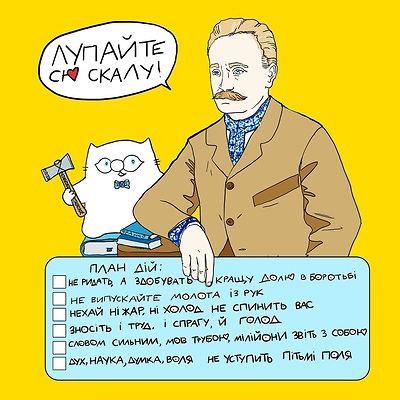 ЛУПАЙТЕ
СЮ СКАЛУ!
ПЛАН ДІЙ:
НЕ РИДАТЬ, А ЗДОБУВАТЬ КРАЩУ ДОЛЮ В БОРОТЬБІ
НЕ ВИПУСКАЙТЕ МОЛОТА ІЗ РУК
НЕХАЙ НІ ЖАР, НІ ХОЛОД НЕ СПИНИТЬ ВАС
ЗНОСІТЬ І ТРУД, І СПРАГУ, Й ГОЛОД
СЛОВОМ СИЛЬНИМ, МОВ ТРУБОЮ, МІЛІЙОНИ ЗВІТЬ З СОБОЮ
ДУХ, НАУКА, ДУМКА, ВОЛЯ НЕ УСТУПИТЬ ПІТЬМІ ПОЛЯ